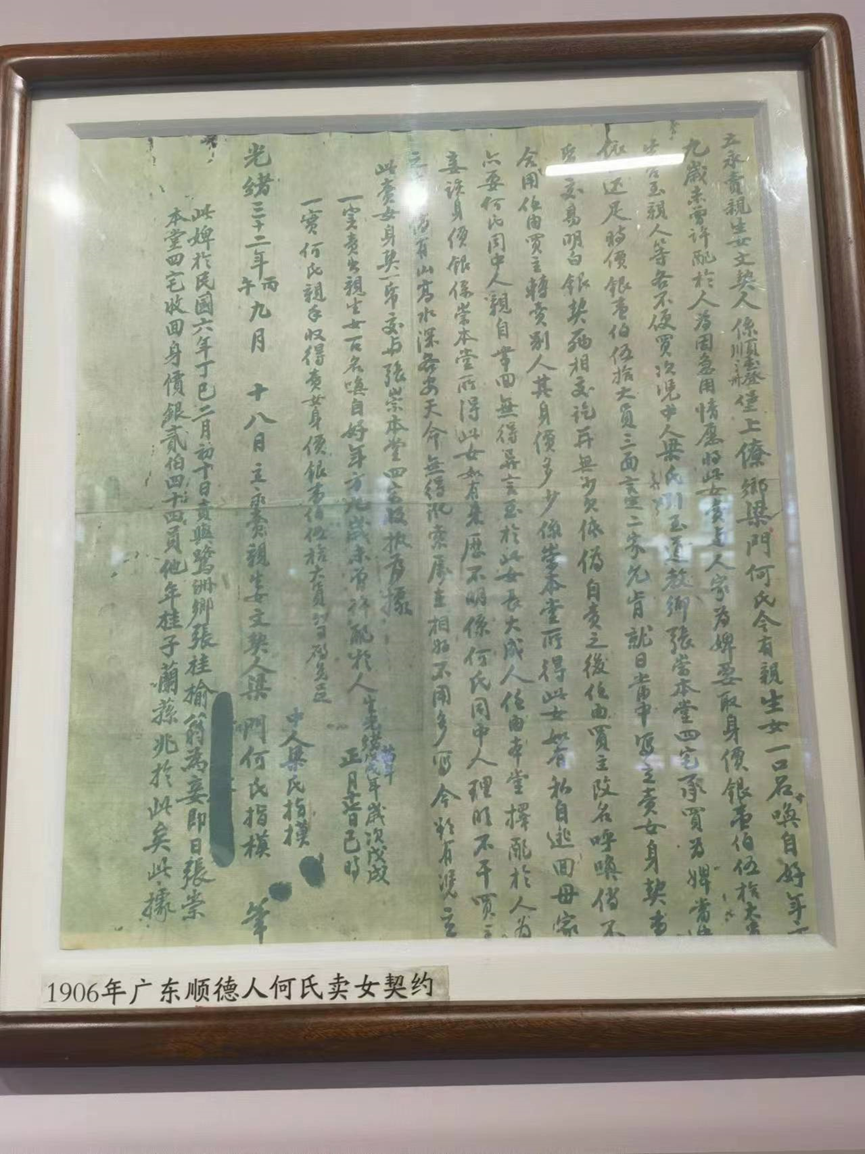 立永賣親生女文契人係順德登洲堡上僚鄉梁門何氏今有親生女一口名喚自好年方
九歲未曾許配於人為因急用情愿將此女賣與人家為婢要取身價銀壹伯伍拾大員
親人等各不便買次浼中人梁氏引至道教鄉張崇本堂四宅承買為婢當
依 还足時價銀壹伯伍拾大員三面言定二家允肯就日當中寫立賣女身契書
交易明白銀契兩相交訖并無少欠依偽自賣之後任由買主改名呼喚倘不
合用任由買主轉賣別人其身價多少係崇本堂所得此女如有私自逃回母家
亦要何氏同中人親自帶回無得異言至於此女長大成人任由本堂擇配於人為
妾該身價銀係崇本堂所得此女如有來歷不明係何氏同中人理明不干買主
倘有山高水深各安天命無得 不用多寫今欲有憑立
此賣女身契一紙交與張崇本堂四宅收執存據
一實賣出親生女一名喚自好年方九歲未曾許配於人 歲次戊戌 正月 日巳時
一實何氏親手收得賣女身價銀壹伯伍拾大員
中人梁氏指模
光緒三十二年丙午九月 十八日立賣親生女文契人梁門何氏指模 筆
此婢於民國六年丁巳二月初十日賣與鷺洲鄉張桂榆翁為妾即日張崇
本堂四宅收回身價銀貳伯四十四員他年桂子蘭孫兆於此矣此據
1906年广东顺德人何氏卖女契约